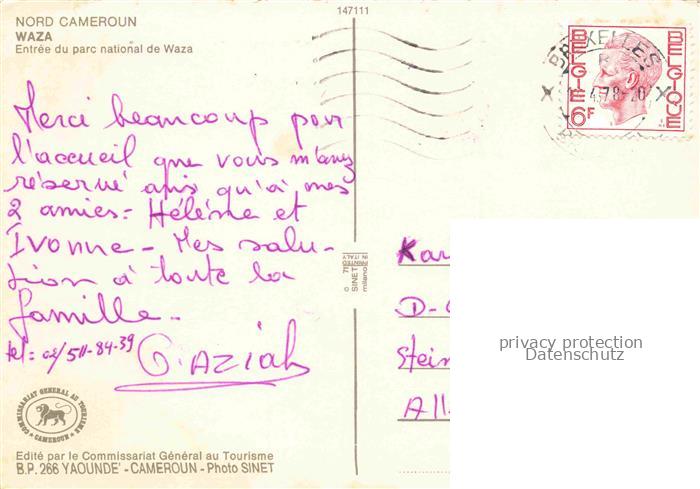 147111
NORD CAMEROUN
WAZA
Entrée du parc national de Waza
Merci beaucoup pour
l'accueil que vous m'avez
réservé ains qu'à mes
2 amies - Hélène et
Ivonne - Mes salu-
tion à toute la
famille -
tel: 02/511-84-39
G. AZIAH
COMMISSARIAT GENERAL AU TOURISME
CAMEROUN
Edité par le Commissariat Général au Tourisme
B.P. 266 YAOUNDE' - CAMEROUN - Photo SINET
PRINTED
IN ITALY
SINET
milano
BELGIE
BELGIQUE
6F
BRUXELLES
Kar
D-
Stein
All
privacy protection
Datenschutz